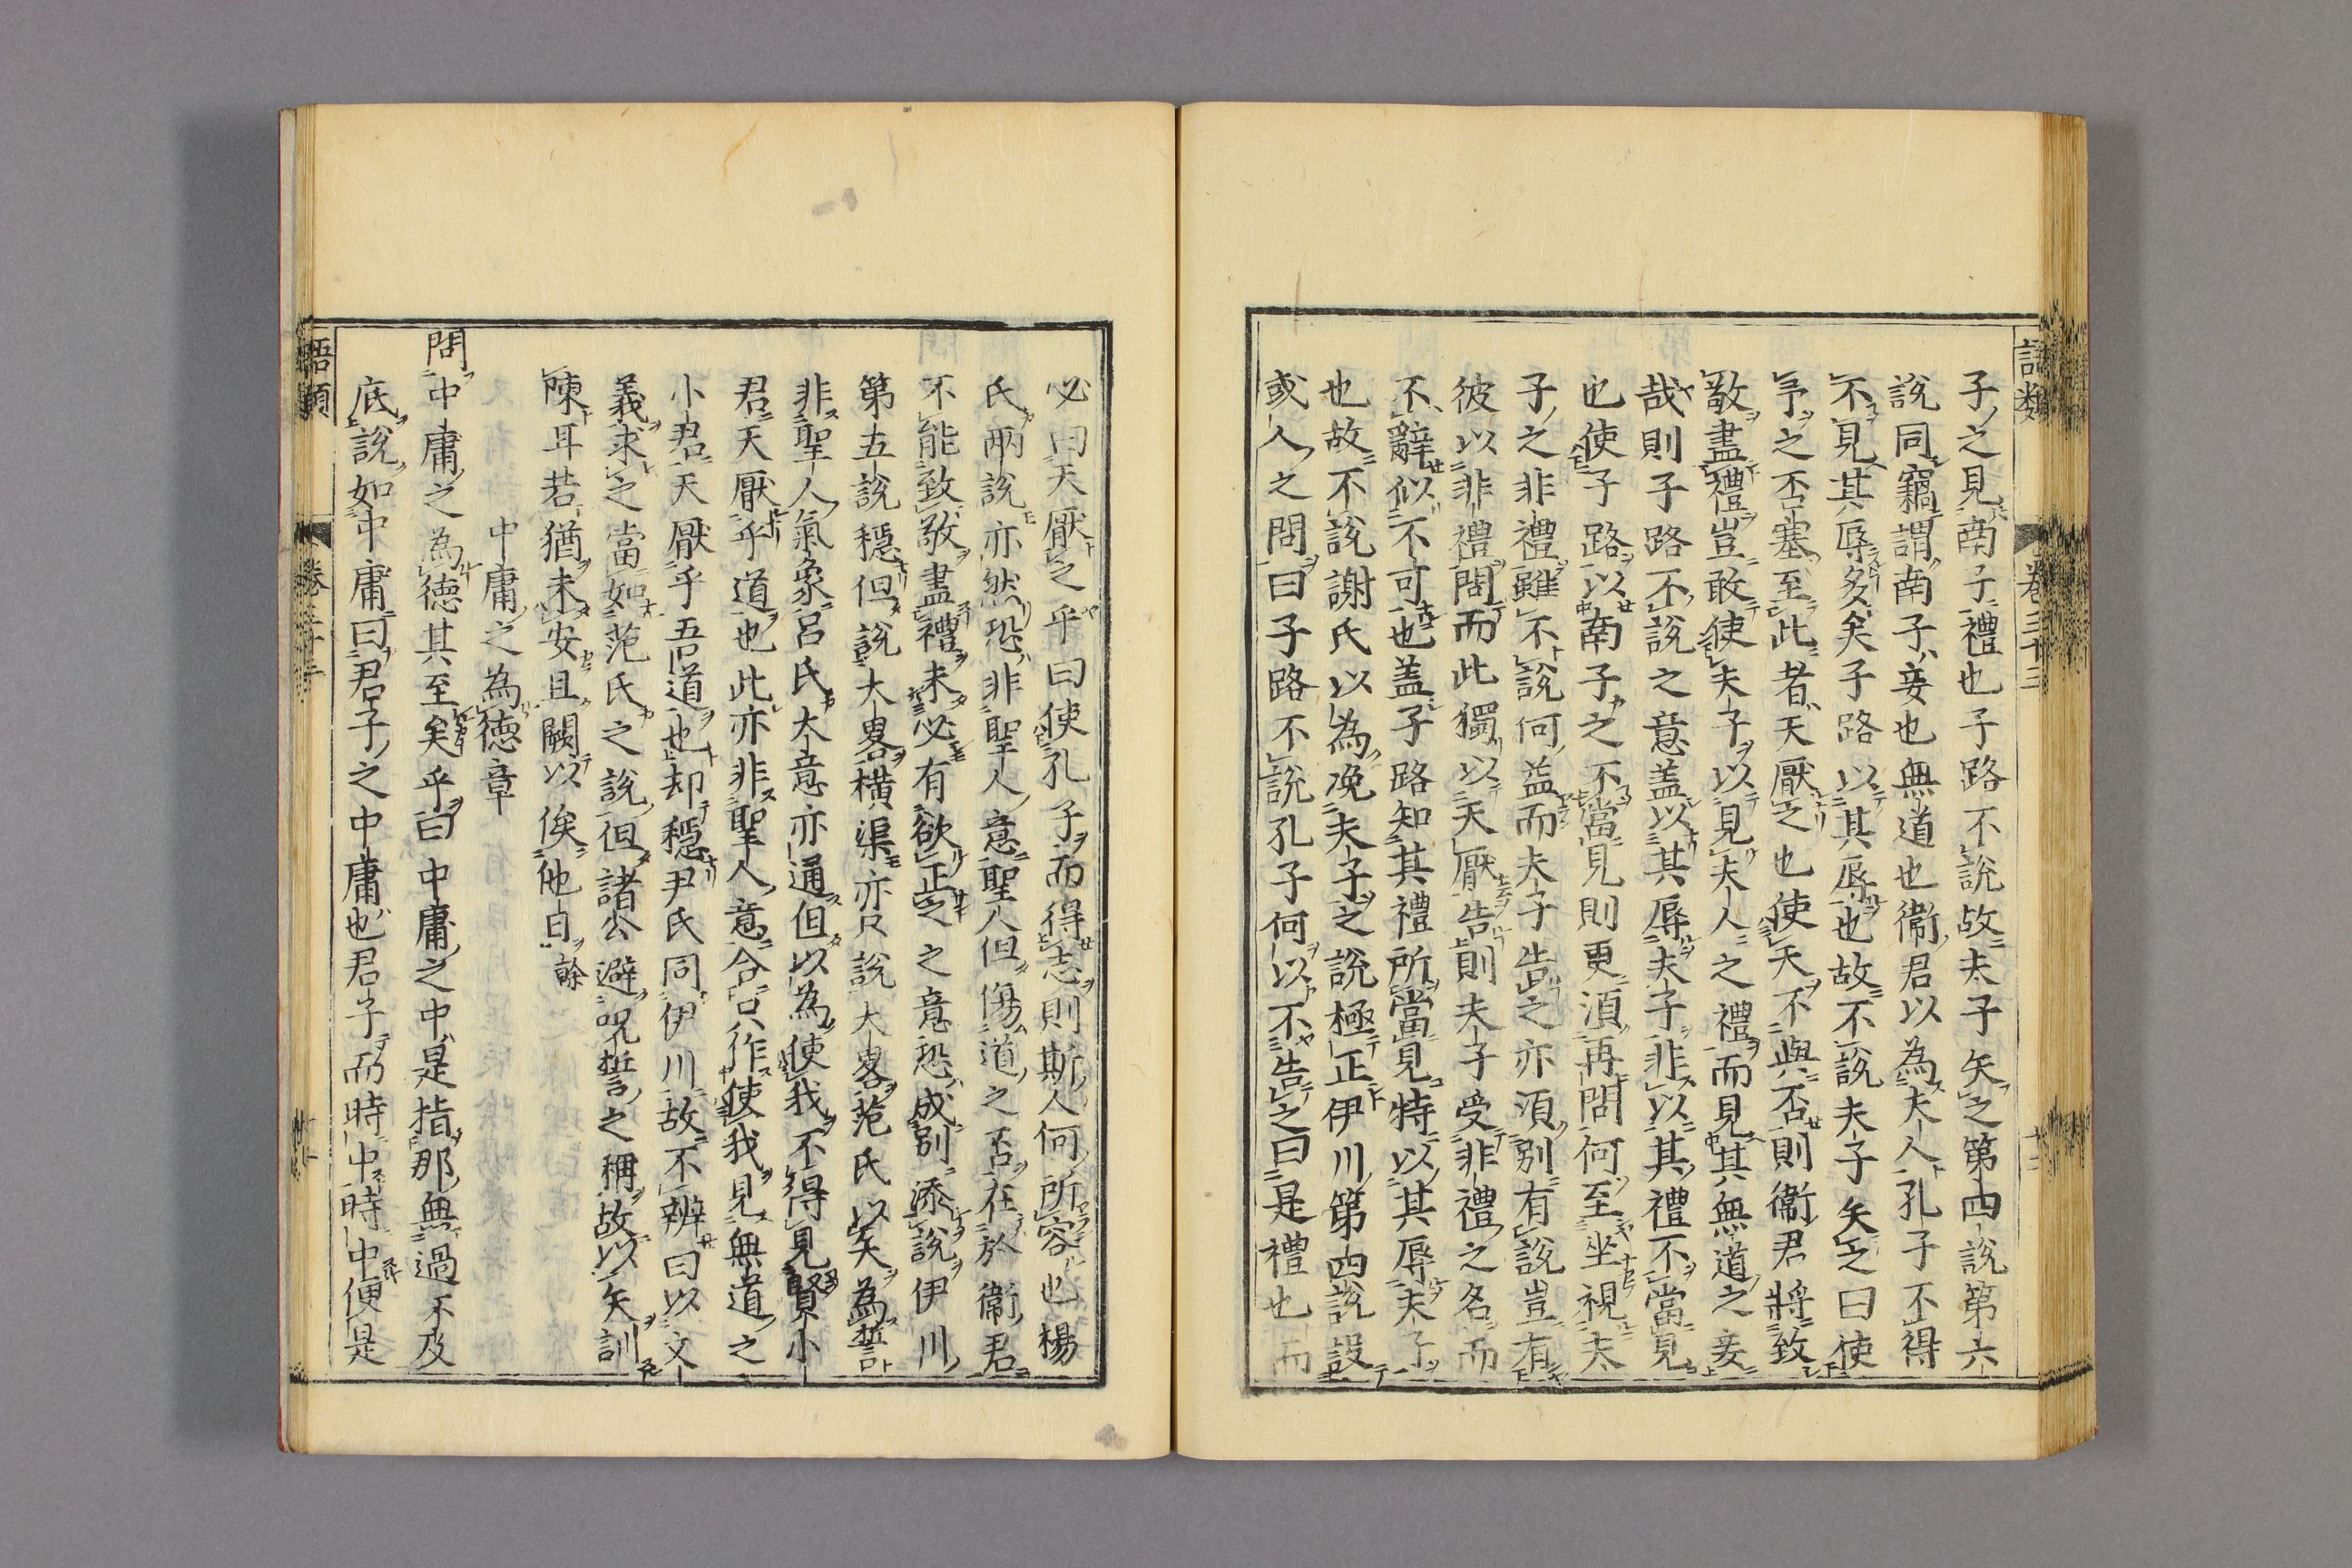 語類
卷三十三
子之見南子禮也子路不說故夫子矢之第四說第六
說同竊謂南子妾也無道也衞君以為夫人孔子不得
不見其辱多矣子路以其辱也故不說夫子矢之曰使
予之否塞至此者天厭之也使天不與否則衞君將致
敬盡禮豈敢使夫子以見夫人之禮而見其無道之妾
哉則子路不說之意盖以其辱夫子非以其禮不當見
也使子路以南子之不當見則更湏再問何至坐視夫
子之非禮雖不說何益而夫子告之亦湏別有說豈有
彼以非禮問而此獨以天厭告則夫子受非禮之名而
不辭似不可也盖子路知其禮所當見特以其辱夫子
也故不說謝氏以為浼夫子之說極正伊川第四說設
或人之問曰子路不說孔子何以不告之曰是禮也而
必曰天厭之乎曰使孔子而得志則斯人何所容也楊
氏兩說亦然恐非聖人意聖人但傷道之否在於衞君
不能致敬盡禮未必有欲正之之意恐成別添說伊川
第五說穩但說大畧橫渠亦只說大畧范氏以矢為誓
非聖人氣象呂氏大意亦通但以為使我不得見賢小
君天厭乎道也此亦非聖人意合只作使我見無道之
小君天厭乎吾道也却穩尹氏同伊川故不辨曰以文
義求之當如范氏之說但諸公避咒誓之稱故以矢訓
陳耳若猶未安且闕以俟他日餘
中庸之為德章
問中庸之為德其至矣乎曰中庸之中是指那無過不及
底說如中庸曰君子之中庸也君子而時中時中便是
語類
卷三十三